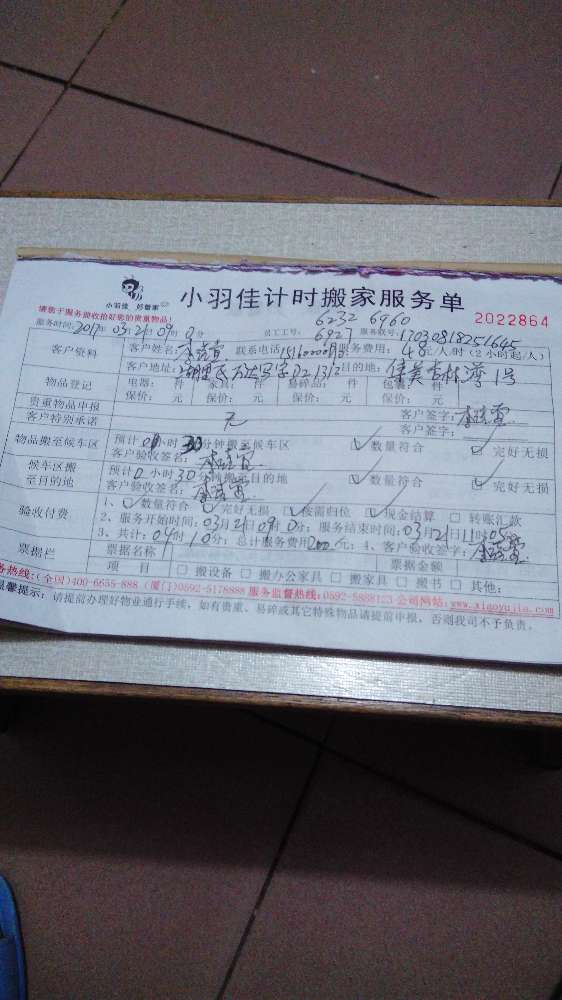 小羽佳 好管家
小羽佳计时搬家服务单
请您于服务前收拾好您的贵重物品!
6232 6960
2022864
服务时间:2017年03月21日09时0分 员工工号: 6927 服务单号:17030818251645
客户资料 客户姓名: 联系电话 服务费用: 48元/人时(2小时起/人)
客户地址: 万达写字 目的地: 1号
物品登记 电器: 件 家具: 件 易碎品: 件 包裹: 件
保价: 元 保价: 元 保价: 元 保价: 元
贵重物品申报 客户签字:
客户特别承诺 无 客户签字:
物品搬至候车区 预计0小时30分钟搬至候车区 数量符合 完好无损
客户验收签名:
候车区搬至目的地 预计0小时30分钟搬至目的地 数量符合 完好无损
客户验收签名:
验收付费 1、数量符合 完好无损 按需归位 现金结算 转账汇款
2、服务开始时间:03月21日09时0分; 服务结束时间:03月21日11时05分
3、共计: 时10分; 总计服务费用200元; 4、客户验收签字:
票据栏 票据名称 票据金额
项 目 搬设备 搬办公家具 搬家具 搬书 其他:
务热线:(全国)400-6655-888 (厦门)0592-5178888 服务监督热线:0592-5888123 公司网站:www.xiaoyujia.com
温馨提示: 请提前办理好物业通行手续, 如有贵重、易碎或其它特殊物品请提前申报, 否则我司不予负责。